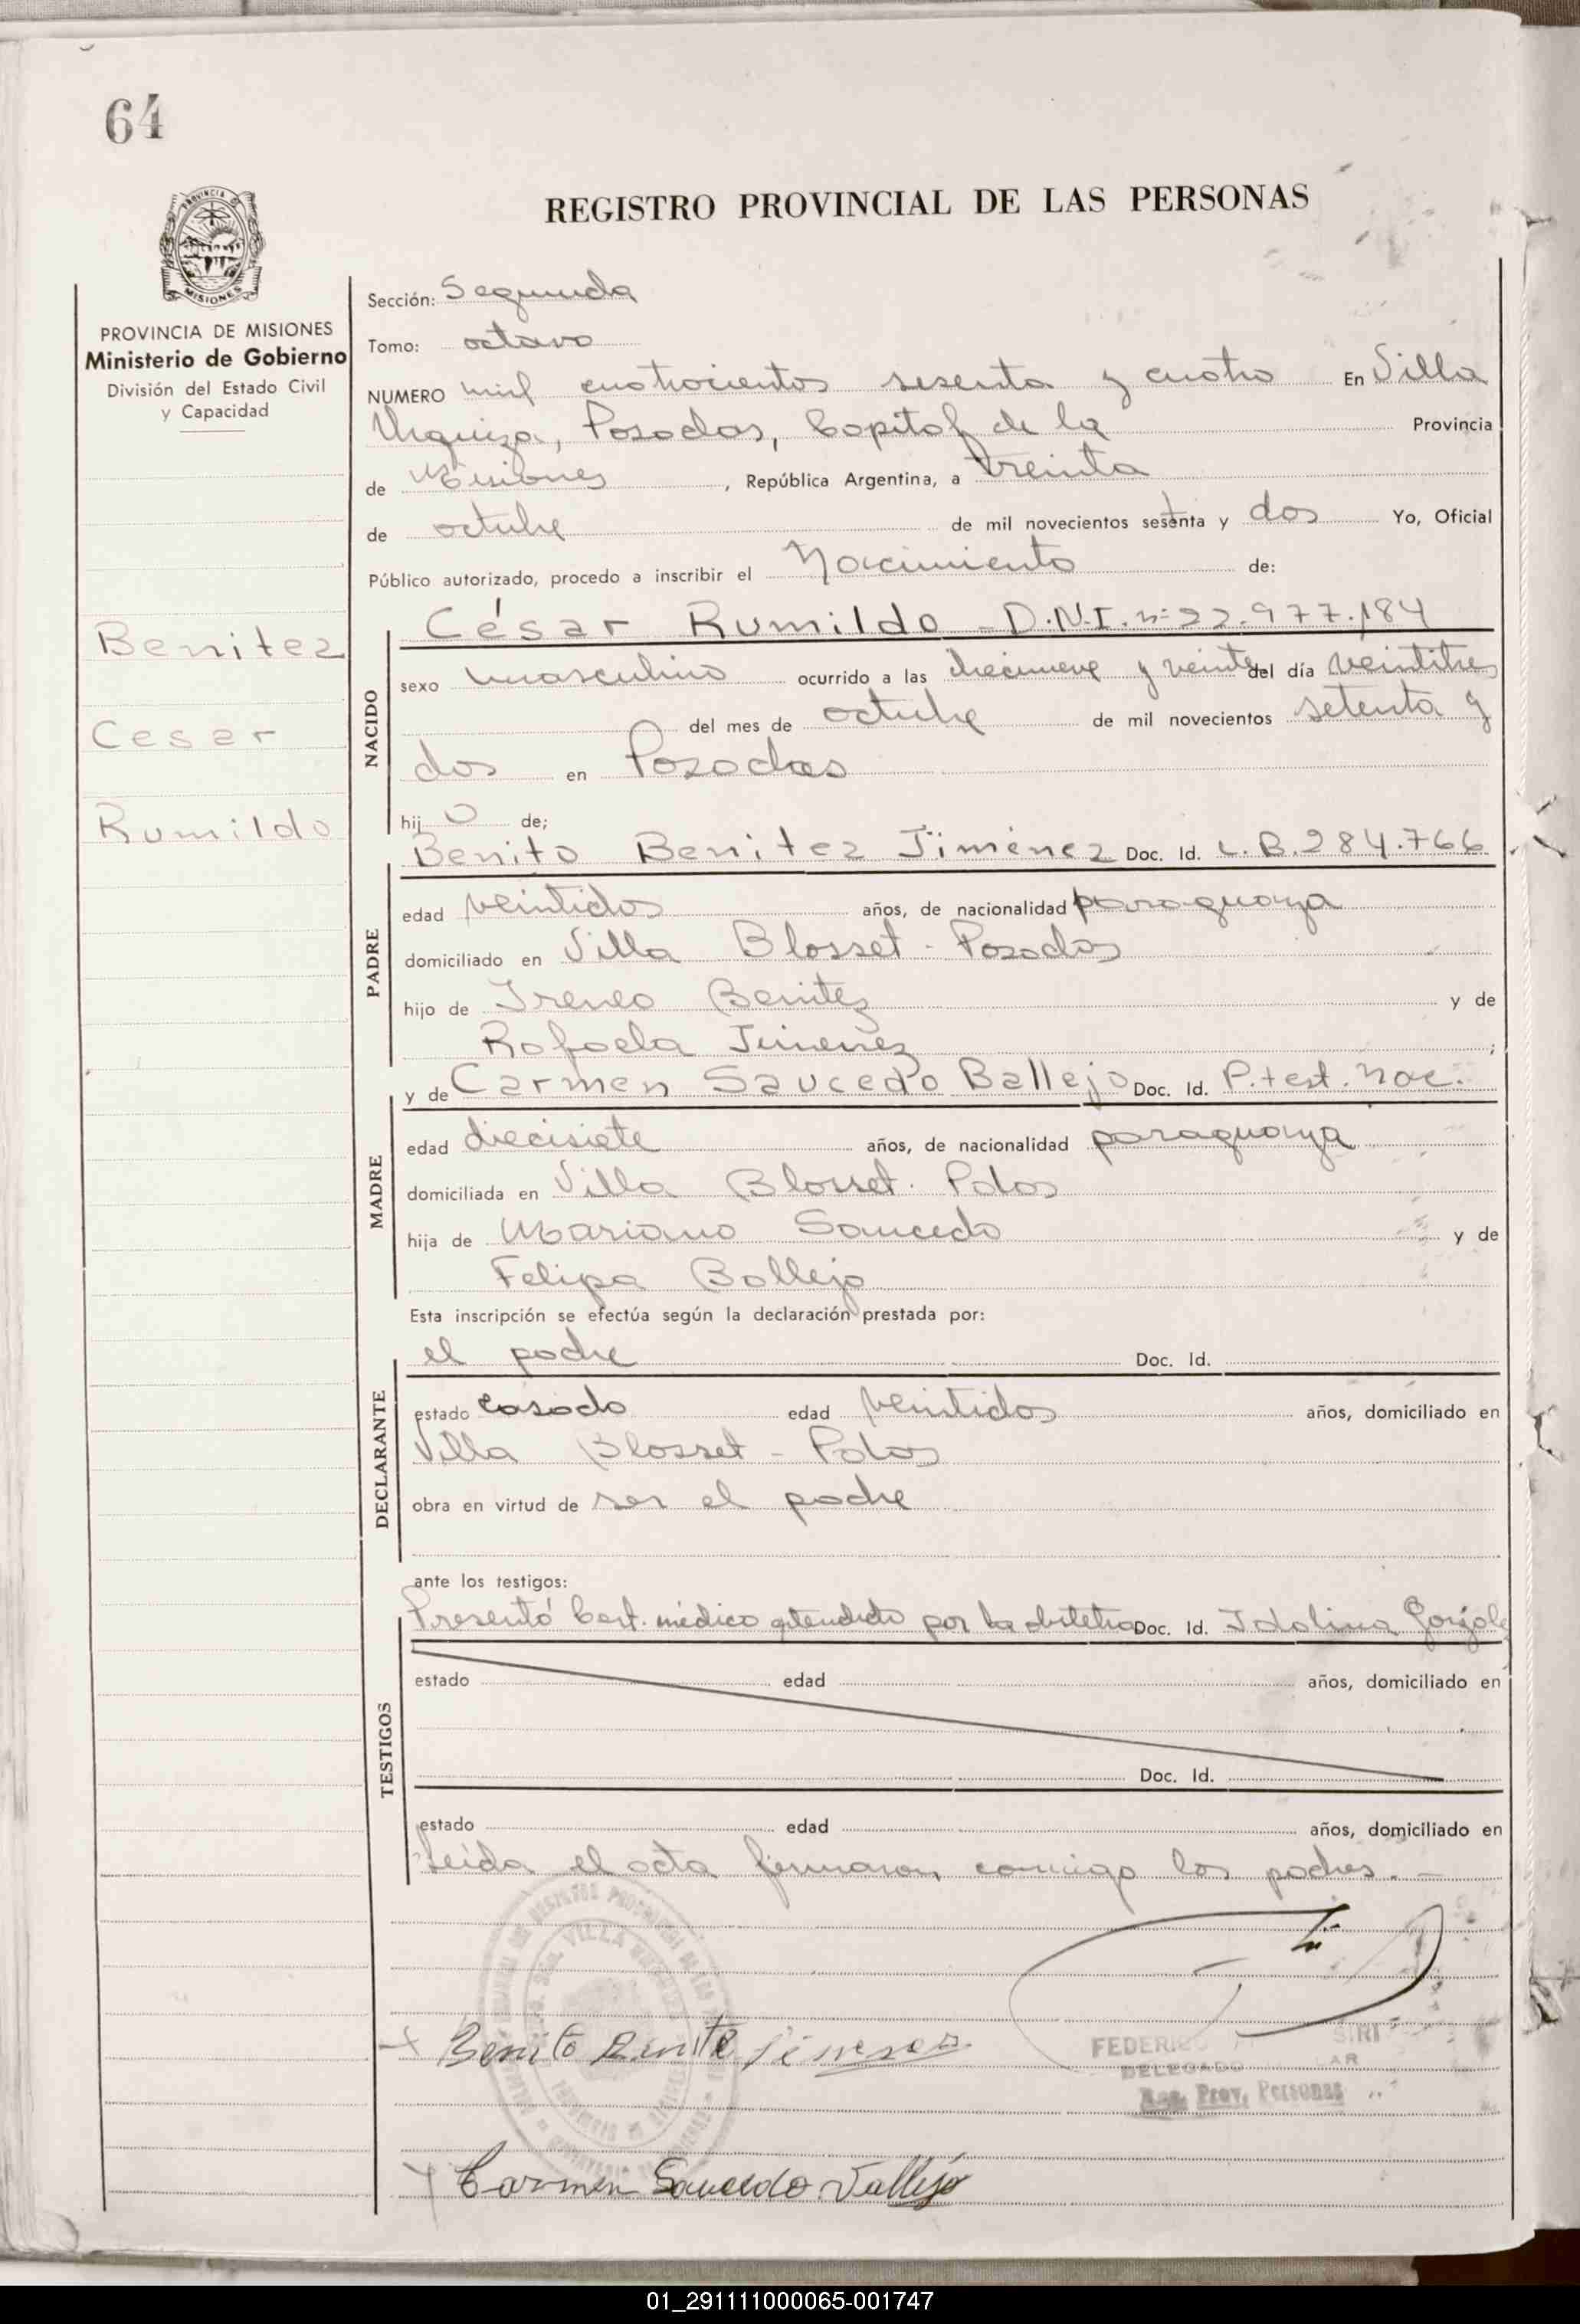 64
REGISTRO PROVINCIAL DE LAS PERSONAS
PROVINCIA
MISIONES
PROVINCIA DE MISIONES
Ministerio de Gobierno
División del Estado Civil
y Capacidad
Benitez
Cesar
Rumildo
Sección: Segunda
Tomo: octavo
NUMERO mil cuatrocientos sesenta y cuatro En Villa
Urquiza, Posadas, Capital de la Provincia
de Misiones, República Argentina, a treinta
de octubre de mil novecientos setenta y dos Yo, Oficial
Público autorizado, procedo a inscribir el Nacimiento de:
César Rumildo - D.N.I. nº 22.977.184
NACIDO
sexo masculino ocurrido a las diecinueve y veinte del día veintitres
del mes de octubre de mil novecientos setenta y
dos en Posadas
hijo de;
Benito Benitez Jiménez Doc. Id. C.B.284.766
PADRE
edad veintidos años, de nacionalidad paraguaya
domiciliado en Villa Blosset - Posadas
hijo de Ireneo Benitez y de
Rafaela Jimenez;
y de Carmen Saucedo Ballejo Doc. Id. P. test. nac.
MADRE
edad diecisiete años, de nacionalidad paraguaya
domiciliada en Villa Blosset. Pdas
hija de Mariano Saucedo y de
Felipa Ballejo
Esta inscripción se efectúa según la declaración prestada por:
el padre Doc. Id.
DECLARANTE
estado casado edad veintidos años, domiciliado en
Villa Blosset - Pdas
obra en virtud de ser el padre
ante los testigos:
Presentó Cert. médico atendido por la obstetra Doc. Id. Idalina Gonzale
TESTIGOS
estado edad años, domiciliado en
Doc. Id.
estado edad años, domiciliado en
Leída el acta firmaron, conmigo los padres. —
Benito Benite Jimenez
FEDERI
DELEGADO
Reg. Prov. Personas
Carmen Saucedo Vallejo
01_291111000065-001747